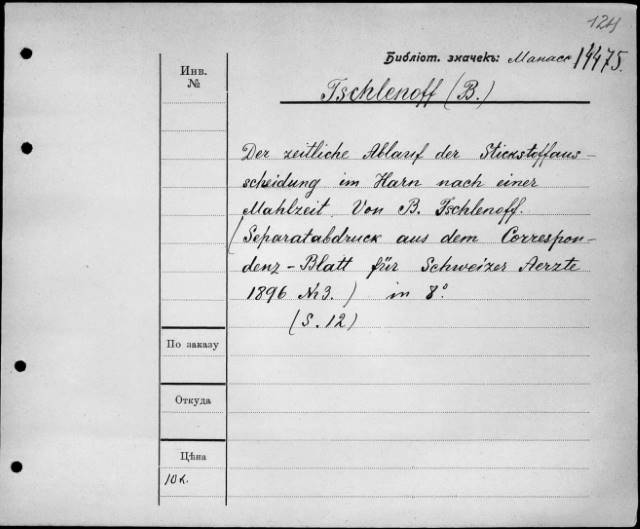 124
Библіот. значекъ: Манасс 14475.
Инв.
№
Tschlenoff (B.)
Der zeitliche Ablauf der Stickstoffaus-
scheidung im Harn nach einer
Mahlzeit. Von B. Tschlenoff.
(Separatabdruck aus dem Correspon-
denz-Blatt für Schweizer Aerzte
1896 Nr3.) in 8°.
(S. 12)
По заказу
Откуда
Цѣна
10 к.